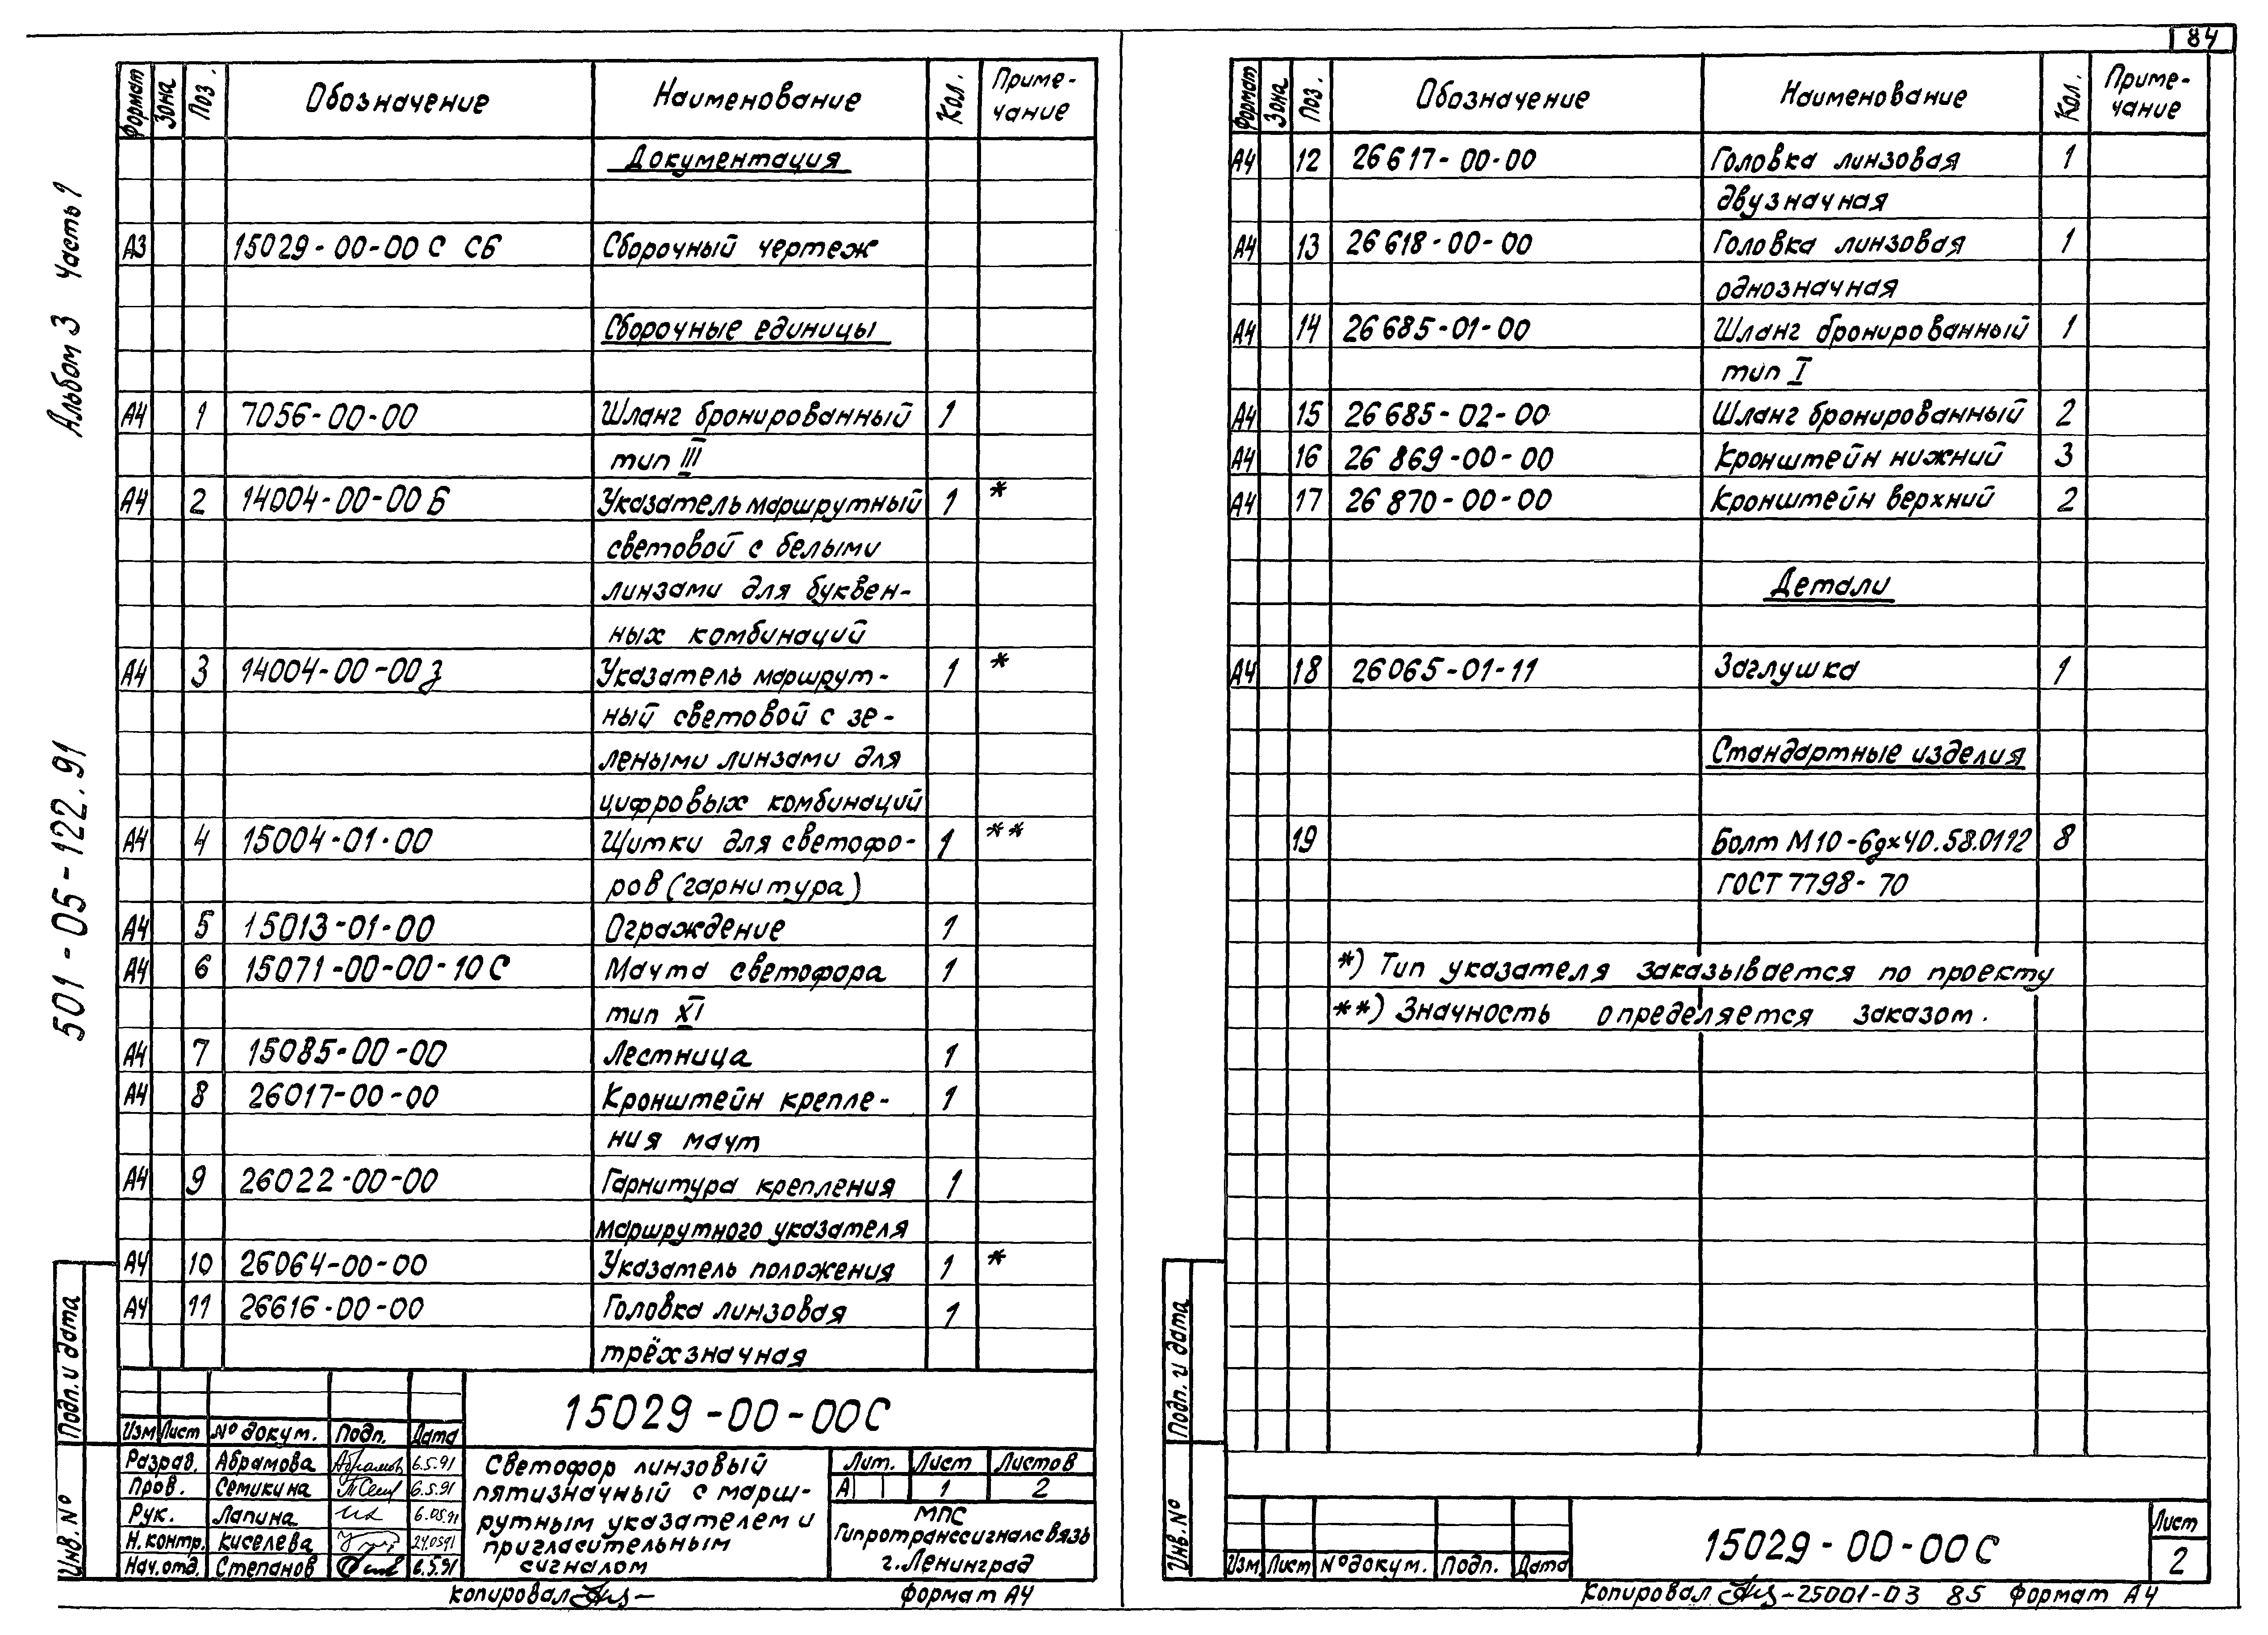 84
Альбом 3 Часть 1
501-05-122.91
Формат Зона Поз. Обозначение Наименование Кол. Приме-
чание
Документация
А3 15029-00-00 С СБ Сборочный чертеж
Сборочные единицы
А4 1 7056-00-00 Шланг бронированный 1
тип III
А4 2 14004-00-00 Б Указатель маршрутный 1 *
световой с белыми
линзами для буквен-
ных комбинаций
А4 3 14004-00-00 з Указатель маршрут- 1 *
ный световой с зе-
леными линзами для
цифровых комбинаций
А4 4 15004-01-00 Щитки для светофо- 1 **
ров (гарнитура)
А4 5 15013-01-00 Ограждение 1
А4 6 15071-00-00-10 С Мачта светофора 1
тип XI
А4 7 15085-00-00 Лестница 1
А4 8 26017-00-00 Кронштейн крепле- 1
ния мачт
А4 9 26022-00-00 Гарнитура крепления 1
маршрутного указателя
А4 10 26064-00-00 Указатель положения 1 *
А4 11 26616-00-00 Головка линзовая 1
трёхзначная
Подп. и дата
Инв. №
15029-00-00С
Изм Лист № докум. Подп. Дата
Разраб. Абрамова 6.5.91
Пров. Семикина 6.5.91
Рук. Лапина 6.05.91
Н.контр. Киселева 24.05.91
Нач.отд. Степанов 6.5.91
Светофор линзовый
пятизначный с марш-
рутным указателем и
пригласительным
сигналом
Лит. Лист Листов
А 1 2
МПС
Гипротранссигналсвязь
г. Ленинград
Копировал Формат А4
Формат Зона Поз. Обозначение Наименование Кол. Приме-
чание
А4 12 26617-00-00 Головка линзовая 1
двузначная
А4 13 26618-00-00 Головка линзовая 1
однозначная
А4 14 26685-01-00 Шланг бронированный 1
тип I
А4 15 26685-02-00 Шланг бронированный 2
А4 16 26869-00-00 Кронштейн нижний 3
А4 17 26870-00-00 Кронштейн верхний 2
Детали
А4 18 26065-01-11 Заглушка 1
Стандартные изделия
19 Болт М10-6gх40.58.0112 8
ГОСТ 7798-70
*) Тип указателя заказывается по проекту
**) Значность определяется заказом.
Подп. и дата
Инв. №
Изм Лист № докум. Подп. Дата
15029-00-00С
Лист
2
Копировал -25001-03 85 Формат А4